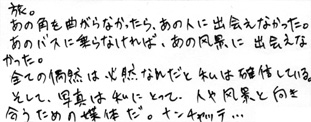 旅。
あの角を曲がらなかったら、あの人に出会えなかった。
あのバスに乗らなければ、あの風景に出会えな
かった。
全ての偶然は必然なんだと私は確信している。
そして、写真は私にとって、人や風景と向き
合うための媒体だ。ナンチャッテ…